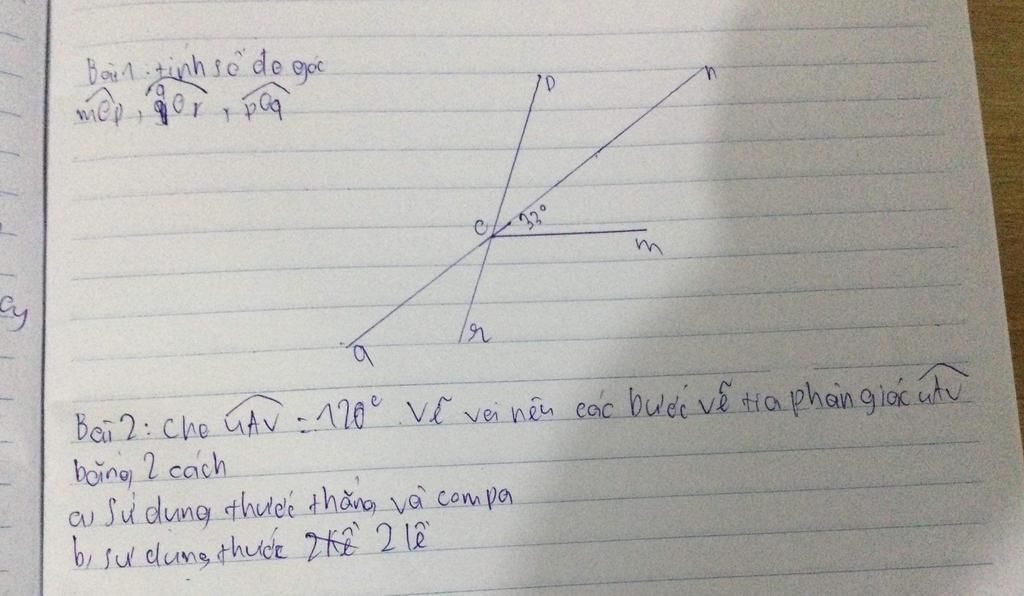 Bài 1. tính số đo góc
mOp, qOr, pOq
p
n
O
33°
m
q
r
Bài 2: Cho uAv = 120° Vẽ và nêu các bước vẽ tia phân giác uAv
bằng 2 cách
a, sử dụng thước thẳng và compa
b, sử dụng thước 2 lề